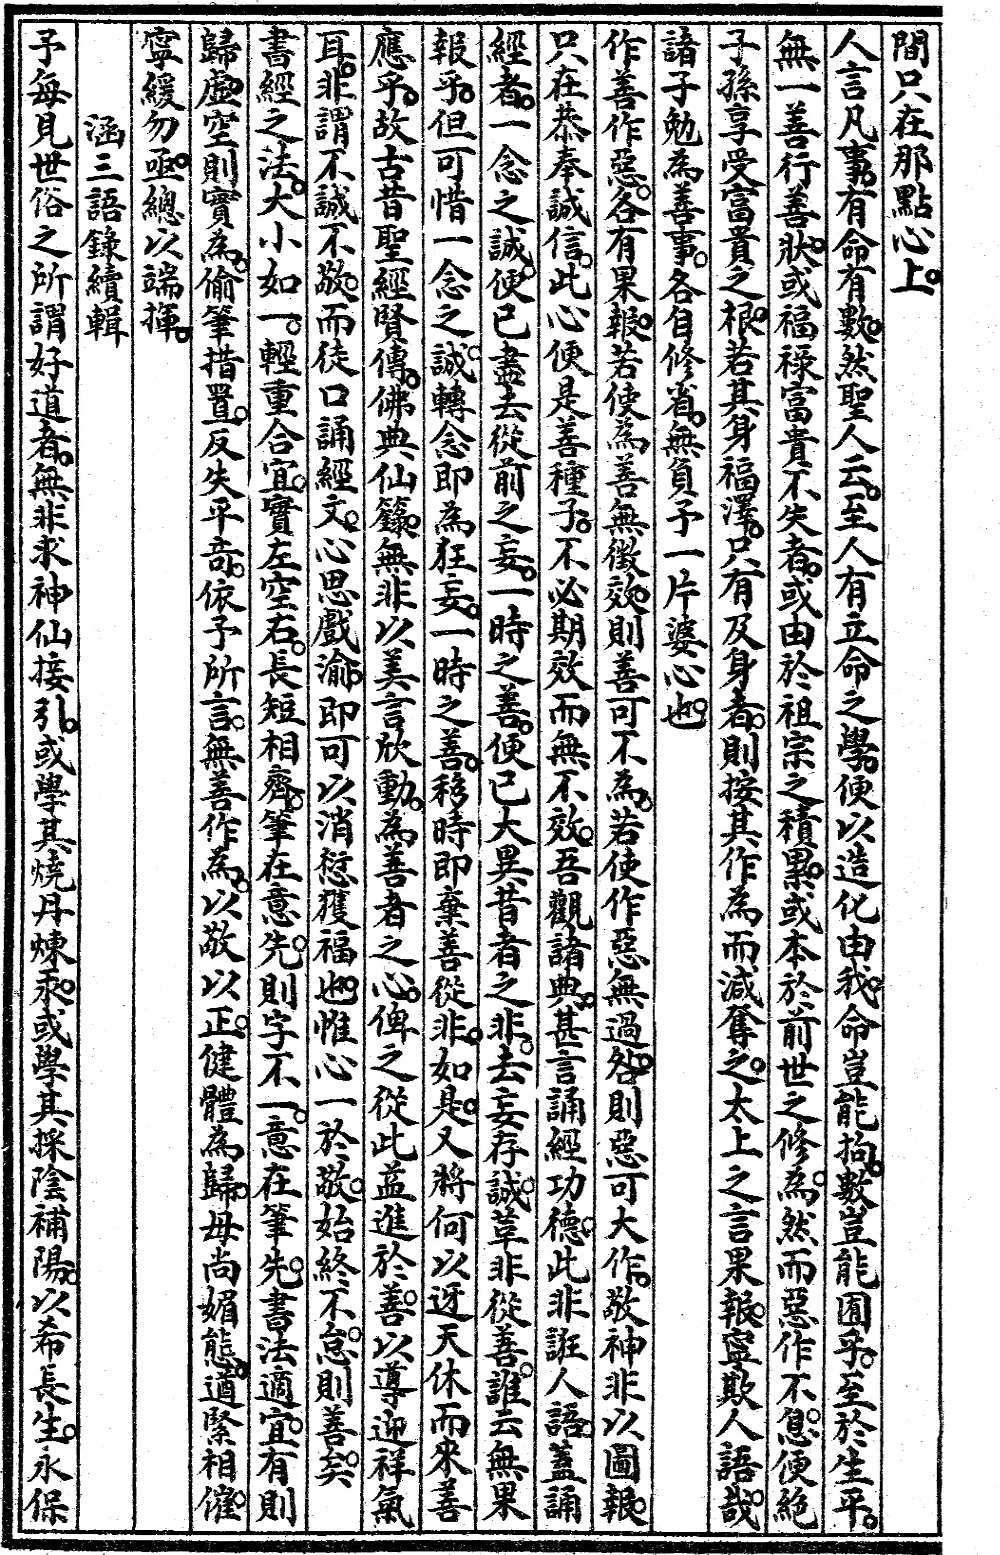 間只在那點心上。
人言凡事。有命有數。然聖人云。至人有立命之學。便以造化由我。命豈能拘。數豈能囿乎。至於生平。
無一善行善狀。或福祿富貴不失者。或由於祖宗之積累。或本於前世之修為。然而惡作不息。便絕
子孫享受富貴之根。若其身福澤。只有及身者。則按其作為而減奪之。太上之言果報。寧欺人語哉。
諸子勉為善事。各自修省。無負予一片婆心也。
作善作惡。各有果報。若使為善無徵效。則善可不為。若使作惡無過咎。則惡可大作。敬神非以圖報。
只在恭奉誠信。此心便是善種子。不必期效而無不效。吾觀諸典。甚言誦經功德。此非誑人語。蓋誦
經者。一念之誠。便已盡去從前之妄。一時之善。便已大異昔者之非。去妄存誠。革非從善。誰云無果
報乎。但可惜一念之誠。轉念即為狂妄。一時之善。移時即棄善從非。如是。又將何以迓天休而來善
應乎。故古昔聖經賢傳。佛典仙籙。無非以美言欣動。為善者之心。俾之從此益進於善。以導迎祥氣
耳。非謂不誠不敬。而徒口誦經文。心思戲渝。即可以消愆獲福也。惟心一於敬。始終不怠。則善矣。
書經之法。大小如一。輕重合宜。實左空右。長短相齊。筆在意先。則字不一。意在筆先。書法適宜。有則
歸虛。空則實為。偷筆措置。反失平奇。依予所言。無善作為。以敬以正。健體為歸。毋尚媚態。遒緊相催。
寧緩勿亟。總以端揮。
涵三語錄續輯
予每見世俗之所謂好道者。無非求神仙接引。或學其燒丹煉汞。或學其採陰補陽。以希長生。永保